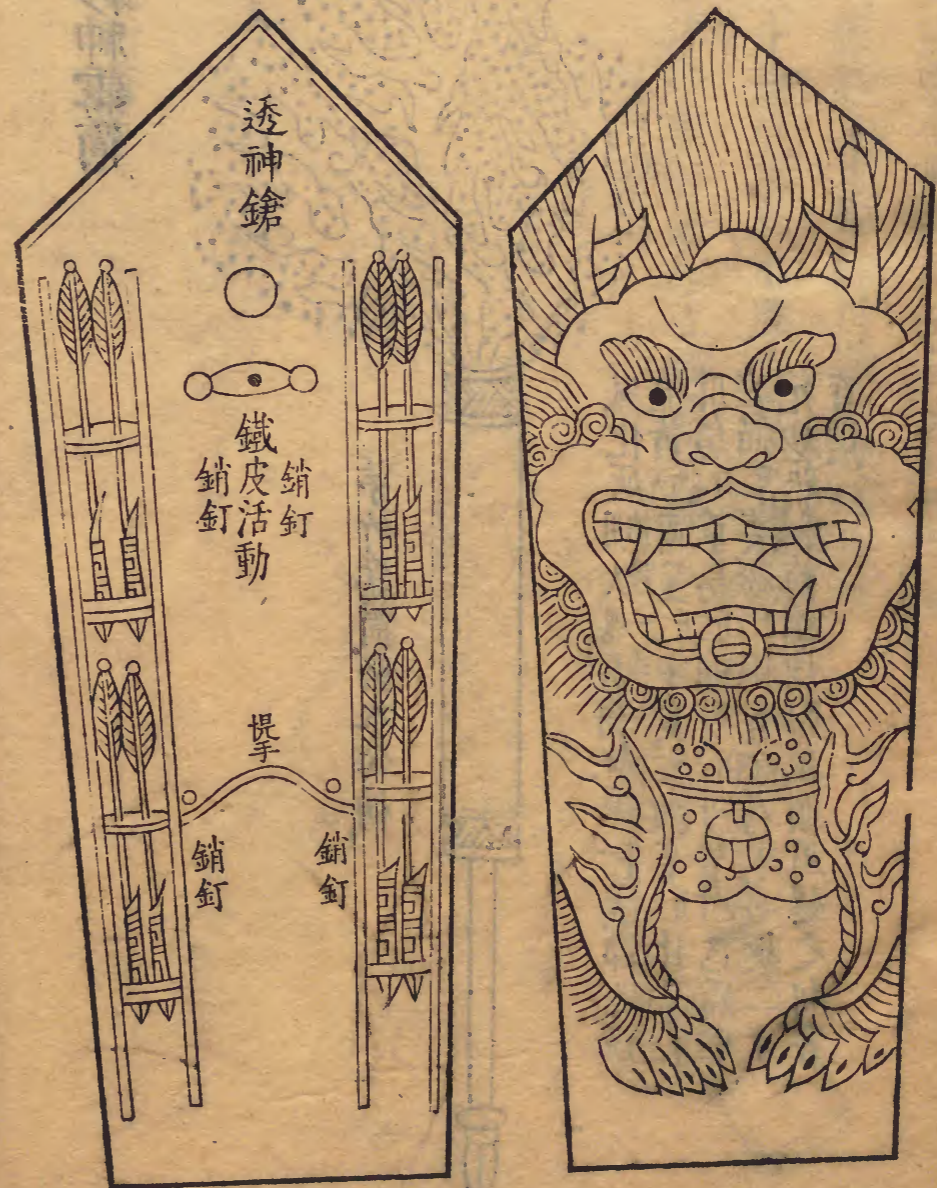 透神鎗
銷釘
鐵皮活動
銷釘
銷釘
銷釘